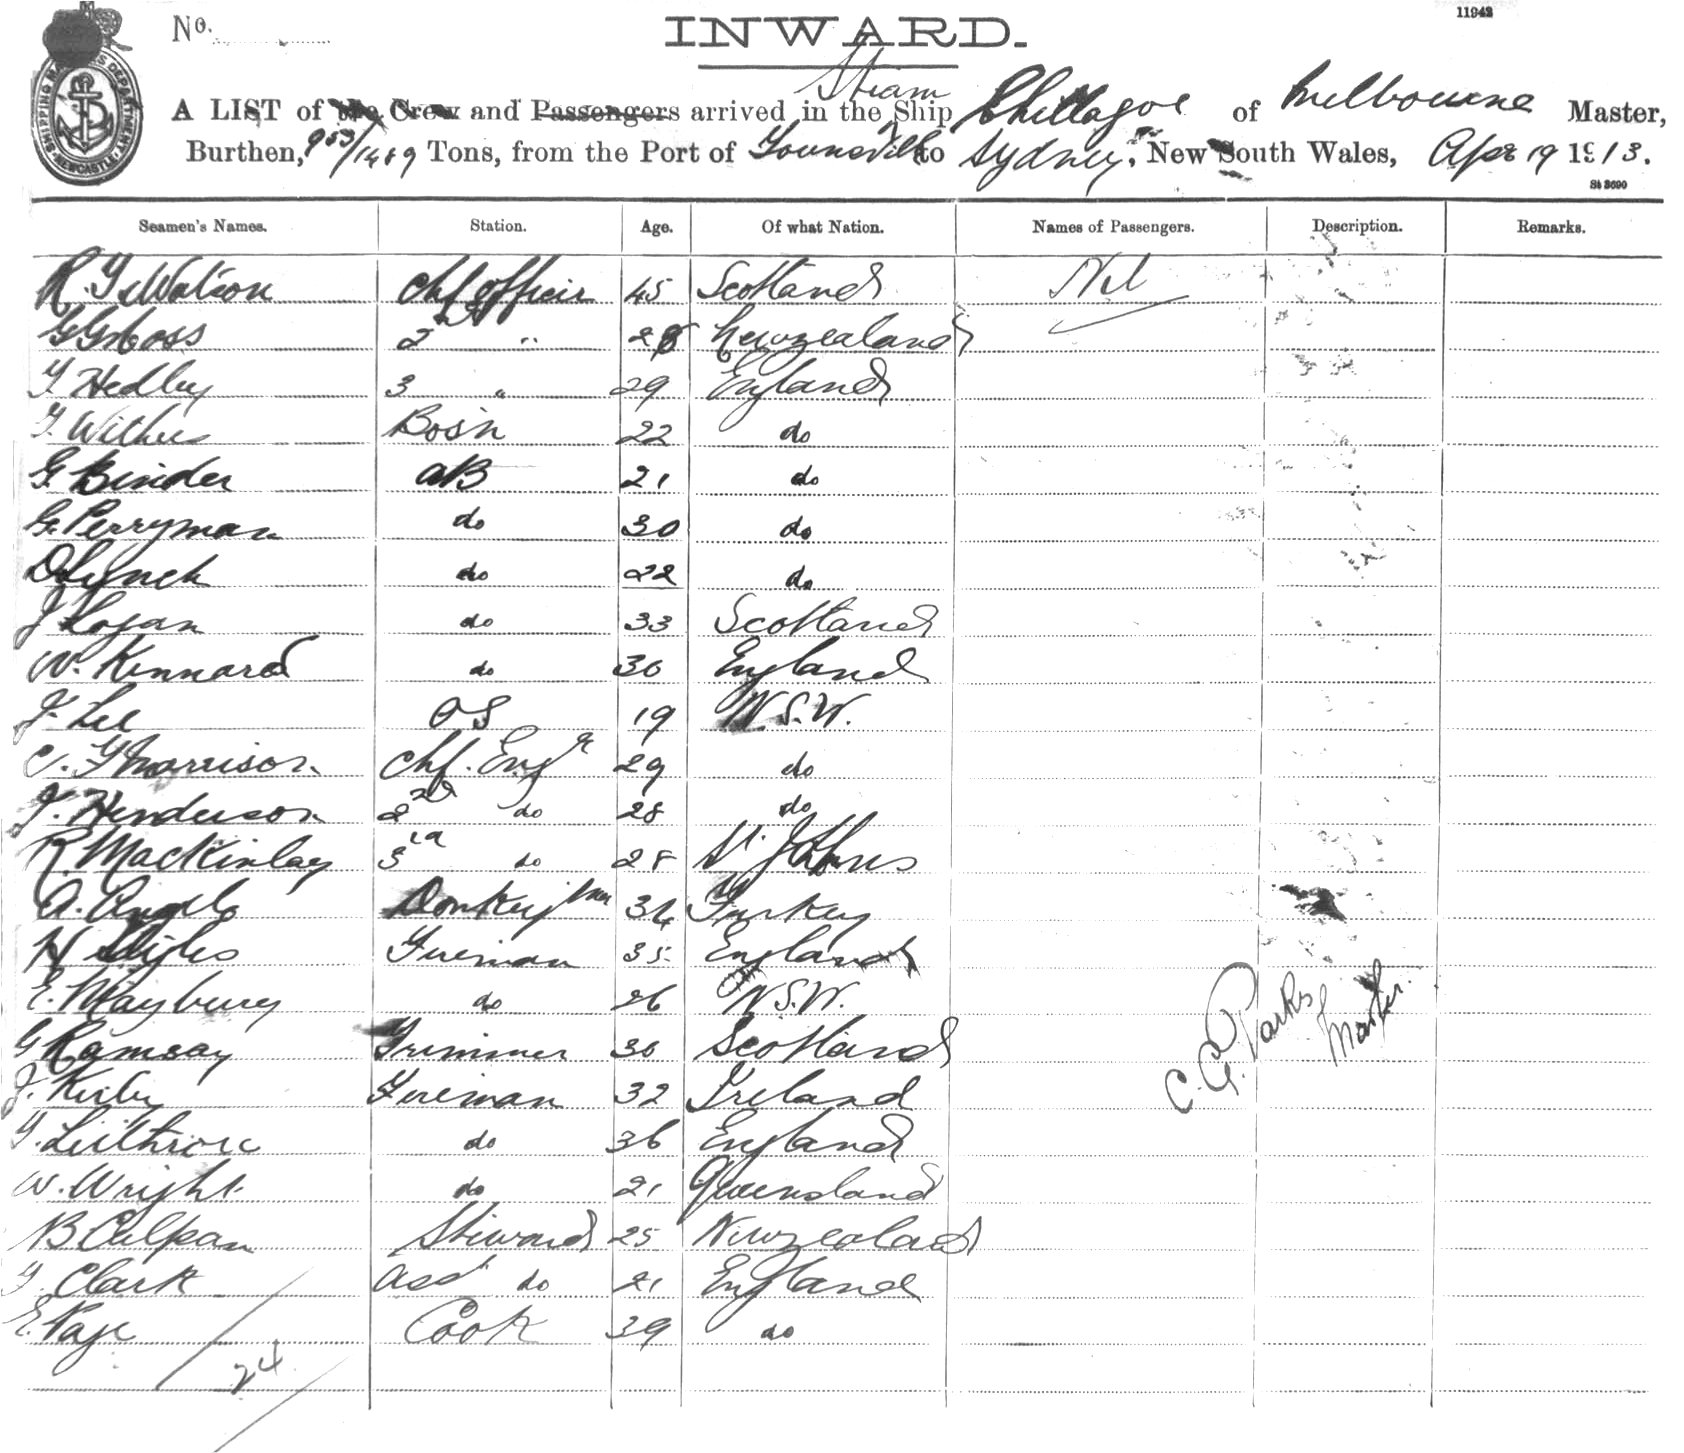 No.
INWARD.
11942
Steam
A LIST of the Crew and Passengers arrived in the Ship Chillagoe of Melbourne Master,
Burthen, 953/1489 Tons, from the Port of Townsville to Sydney, New South Wales, Apr 19 1913.
St 3690
SHIPPING MASTER'S DEPARTMENT, NEWCASTLE
Seamen's Names. Station. Age. Of what Nation. Names of Passengers. Description. Remarks.
Watson Chf officer 45 Scotland Nil
2nd " 28 Newzealand
T. Hedley 3 " 29 England
Bosn 22 do
G. Binder AB 21 do
G. Perryman do 30 do
D Lynch do 22 do
J Logan do 33 Scotland
W. Kennard do 30 England
J. Lee OS 19 N.S.W.
C. G Morrison Chf. Engr 29 do
J. Henderson 2nd do 28 do
R. Mackinlay 3rd do 28 St. Johns
A. Angelo Donkeyman 34 Turkey
H Fireman 35 England
E. Maybury do 26 N.S.W.
G Ramsay Trimmer 30 Scotland
J. Kirby Fireman 32 Ireland
do 36 England
W. Wright do 21 Queensland
B Culpan Steward 25 Newzealand
T. Clark Asst do 21 England
E. Page Cook 39 do
24
C. G. Parks
Master.